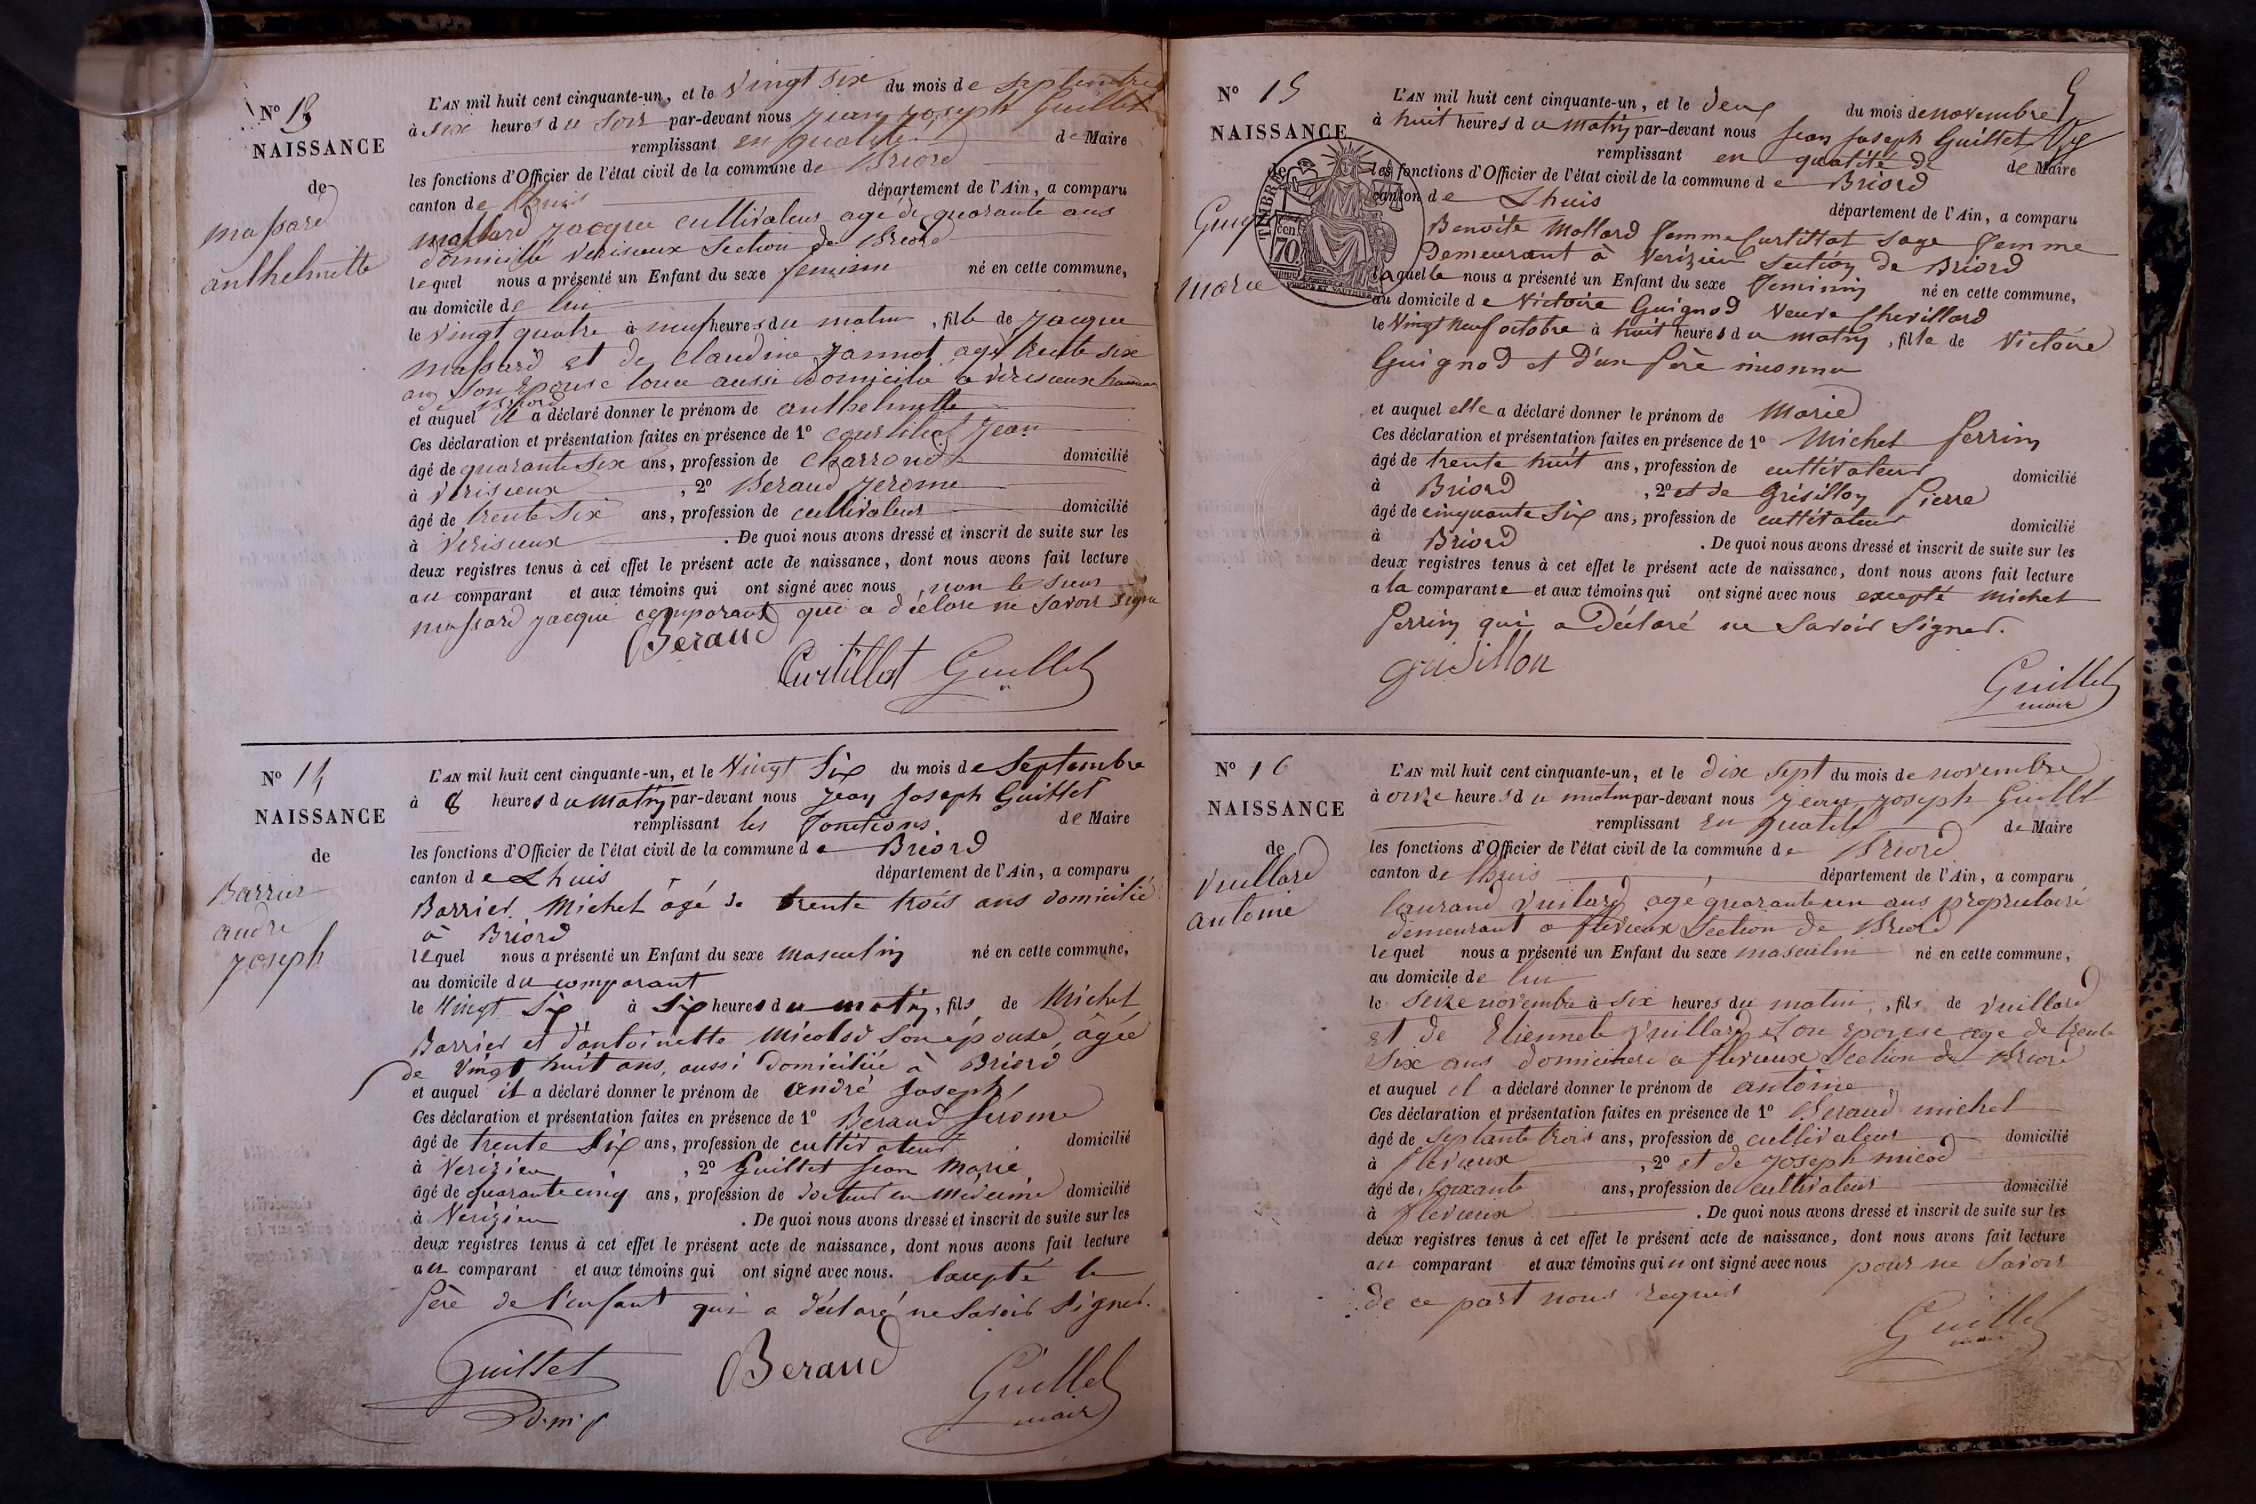 N° 13
NAISSANCE
de
Massard
anthelmette
L'AN mil huit cent cinquante-un, et le vingt six du mois de septembre
à six heures du soir par-devant nous Jean Joseph Guillet
remplissant en qualité de Maire
les fonctions d'Officier de l'état civil de la commune de Briord
canton de Lhuis département de l'Ain, a comparu
Massard Jacque cultivateur age de quarante ans
domicilié Verisieux Section de Briord
lequel nous a présenté un Enfant du sexe feminin né en cette commune,
au domicile de lui
le vingt quatre à neuf heures du matin, fille de Jacque
Massard et de Claudine Jannot agé trente six
ans son Epouse aussi domicilié a verisieux
de Briord
et auquel il a déclaré donner le prénom de anthelmette
Ces déclaration et présentation faites en présence de 1° Courtillat Jean
âgé de quarante six ans, profession de charron domicilié
à Verisieux, 2° Beraud Jerome
âgé de trente Six ans, profession de cultivateur domicilié
à Verisieux. De quoi nous avons dressé et inscrit de suite sur les
deux registres tenus à cet effet le présent acte de naissance, dont nous avons fait lecture
au comparant et aux témoins qui ont signé avec nous non le sieur
Massard Jacque comparant qui a déclaré ne savoir signe
Beraud
Curtillat Guillet
N° 14
NAISSANCE
de
Barrier
andre
Joseph
L'AN mil huit cent cinquante-un, et le Vingt Six du mois de Septembre
à 8 heures du Matin par-devant nous Jean Joseph Guillet
remplissant les fonctions de Maire
les fonctions d'Officier de l'état civil de la commune de Briord
canton de Lhuis département de l'Ain, a comparu
Barrier Michel âgé de trente trois ans domicilié
à Briord
lequel nous a présenté un Enfant du sexe Masculin né en cette commune,
au domicile du comparant
le Vingt Six à Six heures du matin, fils de Michel
Barrier et d'antoinette Micolod son épouse, âgée
de Vingt huit ans, aussi domiciliée à Briord
et auquel il a déclaré donner le prénom de andré Joseph
Ces déclaration et présentation faites en présence de 1° Beraud Jérome
âgé de trente Six ans, profession de cultivateur domicilié
à Verizieu, 2° Guillet Jean Marie
âgé de quarante cinq ans, profession de docteur en Médecine domicilié
à Verizieu. De quoi nous avons dressé et inscrit de suite sur les
deux registres tenus à cet effet le présent acte de naissance, dont nous avons fait lecture
au comparant et aux témoins qui ont signé avec nous. Excepté le
Père de l'enfant qui a déclaré ne Savoir Signer.
Guillet Beraud Guillet
d.m.p maire
N° 15
NAISSANCE
de
Marie
TIMBRE
70
L'AN mil huit cent cinquante-un, et le deux du mois de novembre
à huit heures du Matin par-devant nous Jean Joseph Guillet
remplissant en qualité de de Maire
les fonctions d'Officier de l'état civil de la commune de Briord
canton de Lhuis département de l'Ain, a comparu
Benoite Mollard femme Curtillat Sage femme
Demeurant à Verizieu Section de Briord
laquelle nous a présenté un Enfant du sexe Feminin né en cette commune,
au domicile de Victoire Guignod Veuve Chevillard
le Vingt neuf octobre à huit heures du matin, fille de Victoire
Guignod et d'un Père inconnu
et auquel elle a déclaré donner le prénom de Marie
Ces déclaration et présentation faites en présence de 1° Michel Perrin
âgé de trente huit ans, profession de cultivateur domicilié
à Briord, 2° et de Grisillon Pierre
âgé de cinquante Six ans, profession de cultivateur domicilié
à Briord. De quoi nous avons dressé et inscrit de suite sur les
deux registres tenus à cet effet le présent acte de naissance, dont nous avons fait lecture
a la comparante et aux témoins qui ont signé avec nous excepté Michel
Perrin qui a Déclaré ne Savoir Signer.
Grisillon
Guillet
maire
N° 16
NAISSANCE
de
Vuillard
antoine
L'AN mil huit cent cinquante-un, et le dix sept du mois de novembre
à onze heures du matin par-devant nous Jean Joseph Guillet
remplissant en qualité de Maire
les fonctions d'Officier de l'état civil de la commune de Briord
canton de Lhuis département de l'Ain, a comparu
Laurand Vuilard agé quarante un ans proprietaire
demeurant a flevieux Section de Briord
lequel nous a présenté un Enfant du sexe masculin né en cette commune,
au domicile de lui
le seize novembre à six heures du matin, fils de Vuillard
et de Etiennete Vuillard son Epouse age de trente
six ans a flevieux Section de Briord
et auquel il a déclaré donner le prénom de antoine
Ces déclaration et présentation faites en présence de 1° Beraud michel
âgé de septante trois ans, profession de cultivateur domicilié
à flevieux, 2° et de Joseph micod
âgé de soixante ans, profession de cultivateur domicilié
à flevieux. De quoi nous avons dressé et inscrit de suite sur les
deux registres tenus à cet effet le présent acte de naissance, dont nous avons fait lecture
au comparant et aux témoins qui n ont signé avec nous pour ne Savoir
de ce part nous requis
Guillet
maire